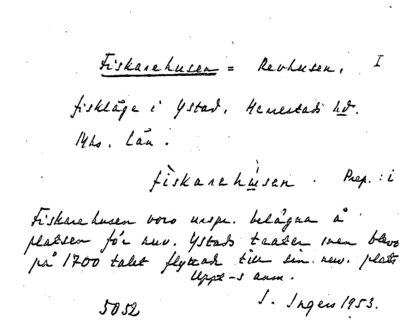 Fiskarehusen = Revhusen, I
fiskläge i Ystad, Herrestads hd.
Mhs. län.
fìskarehúsen . Prep.: i
Fiskarehusen voro urspr. belägna å
platsen för nuv. Ystads teater men blevo
på 1700 talet flyttade till sin nuv. plats
Uppt-s anm.
5052 I. Ingers 1953.